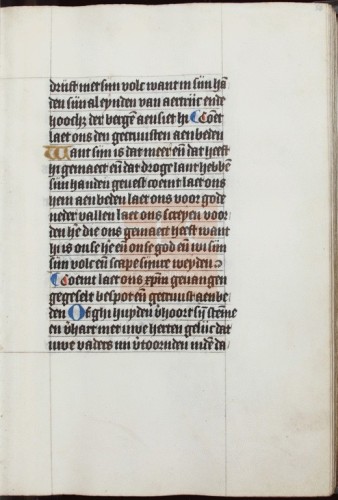 drijft met sijn volc want in sijn hā
den sijn al eynden van aertrijc ende
hoochʒ der bergē aensiet hi Coēt
laet ons den gecruusten aenbeden
Want sijn is dat meer eñ dat heeft
hi gemaect eñ dat droge lant hebbē
sijn handen geuest coemt laet ons
hem aenbeden laet ons voor gode
neder vallen laet ons screyen voor
den hē die ons gemaect heeft want
hi is onse hē eñ onse god eñ wi sijn
sijn volc eñ scape sijnre weyden
Coemt laet ons xpm̄ geuangen
gegeselt bespot eñ gecruust aenbe
den Of ghi huyden v̄hoort sij stēme
en v̄hart niet uwe herten gelijc dat
uwe vaders mi v̄toornden indē da